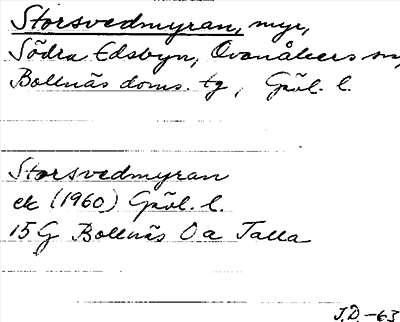 Storsvedmyran, myr,
Södra Edsbyn, Ovanåkers sn,
Bollnäs doms. tg, Gävl. l.
Storsvedmyran
ek (1960) Gävl. l.
15G Bollnäs 0a Talla
J.D.-63